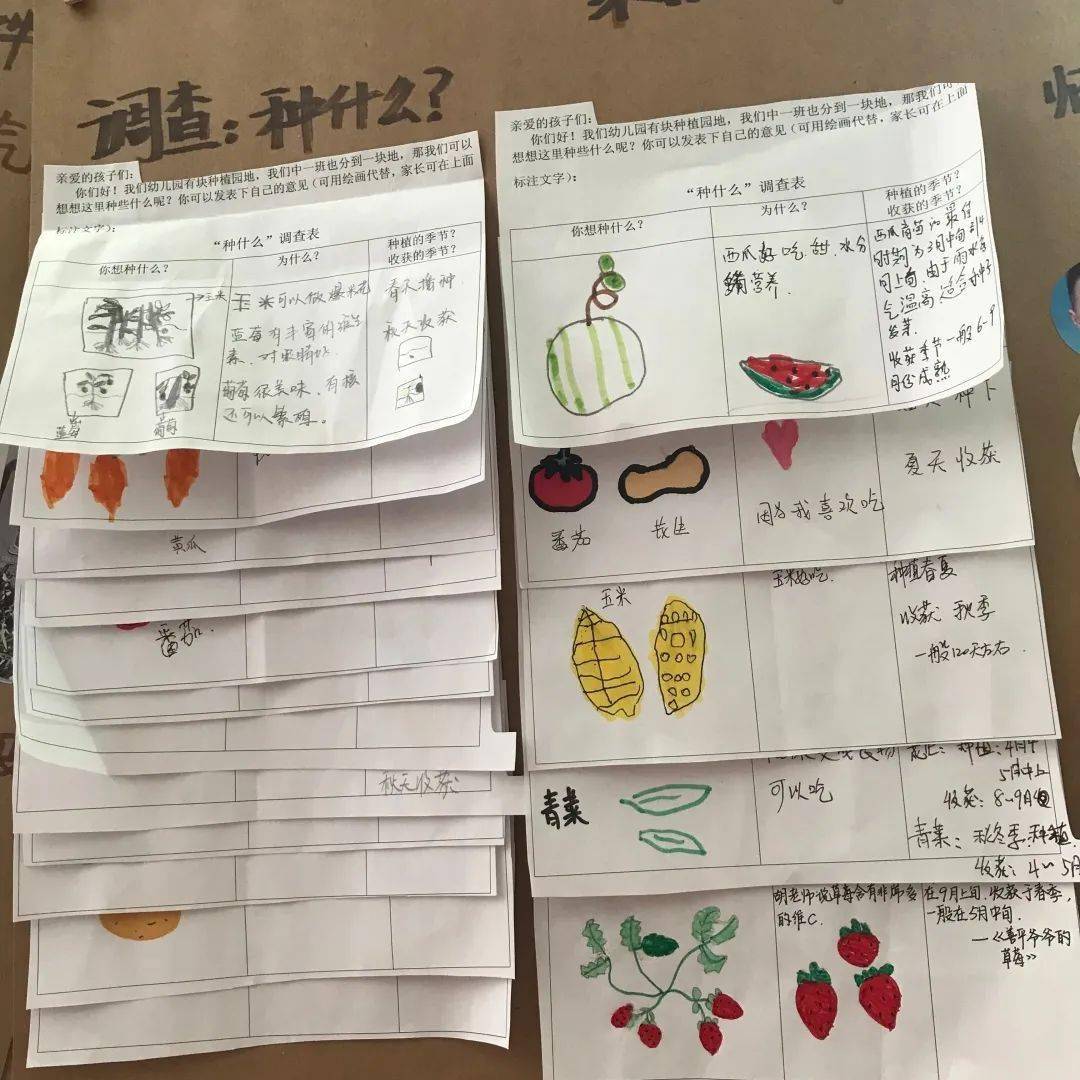 调查:种什么?
亲爱的孩子们:
你们好!我们幼儿园有块种植园地,我们中一班也分到一块地,那我们可以
想想这里种些什么呢?你可以发表下自己的意见(可用绘画代替,家长可在上面
标注文字):
“种什么”调查表
你想种什么?
为什么?
种植的季节?
收获的季节?
玉米
蓝莓
葡萄
玉米可以做爆米花
蓝莓有丰富的维生
素,对眼睛好.
葡萄很美味,有核
还可以
春天播种
秋天收获
黄瓜
番茄
秋天收获
亲爱的孩子们:
你们好!我们幼儿园有块种植园地,我们中一班也分到一块地,那我们可以
想想这里种些什么呢?你可以发表下自己的意见(可用绘画代替,家长可在上面
标注文字):
“种什么”调查表
你想种什么?
为什么?
种植的季节?
收获的季节?
西瓜好吃.甜.水分
营养.
西瓜育苗的最佳
时期为3月中旬到4
月上旬.由于雨水多
气温高,适合种子
发芽.
收获季节一般6-9
月份成熟
番茄
花生
因为我喜欢吃
夏天收获
玉米
玉米好吃.
种植春夏
收获 秋季
一般120天左右.
青菜
可以吃
种植:4月
5月中上
收获:8~9月
青菜:秋冬季.种植
收获:4~5月
胡老师说草莓含有非常多
的维C.
在9月上旬.收获于春季,
一般在5月中旬.
—《善平爷爷的
草莓》